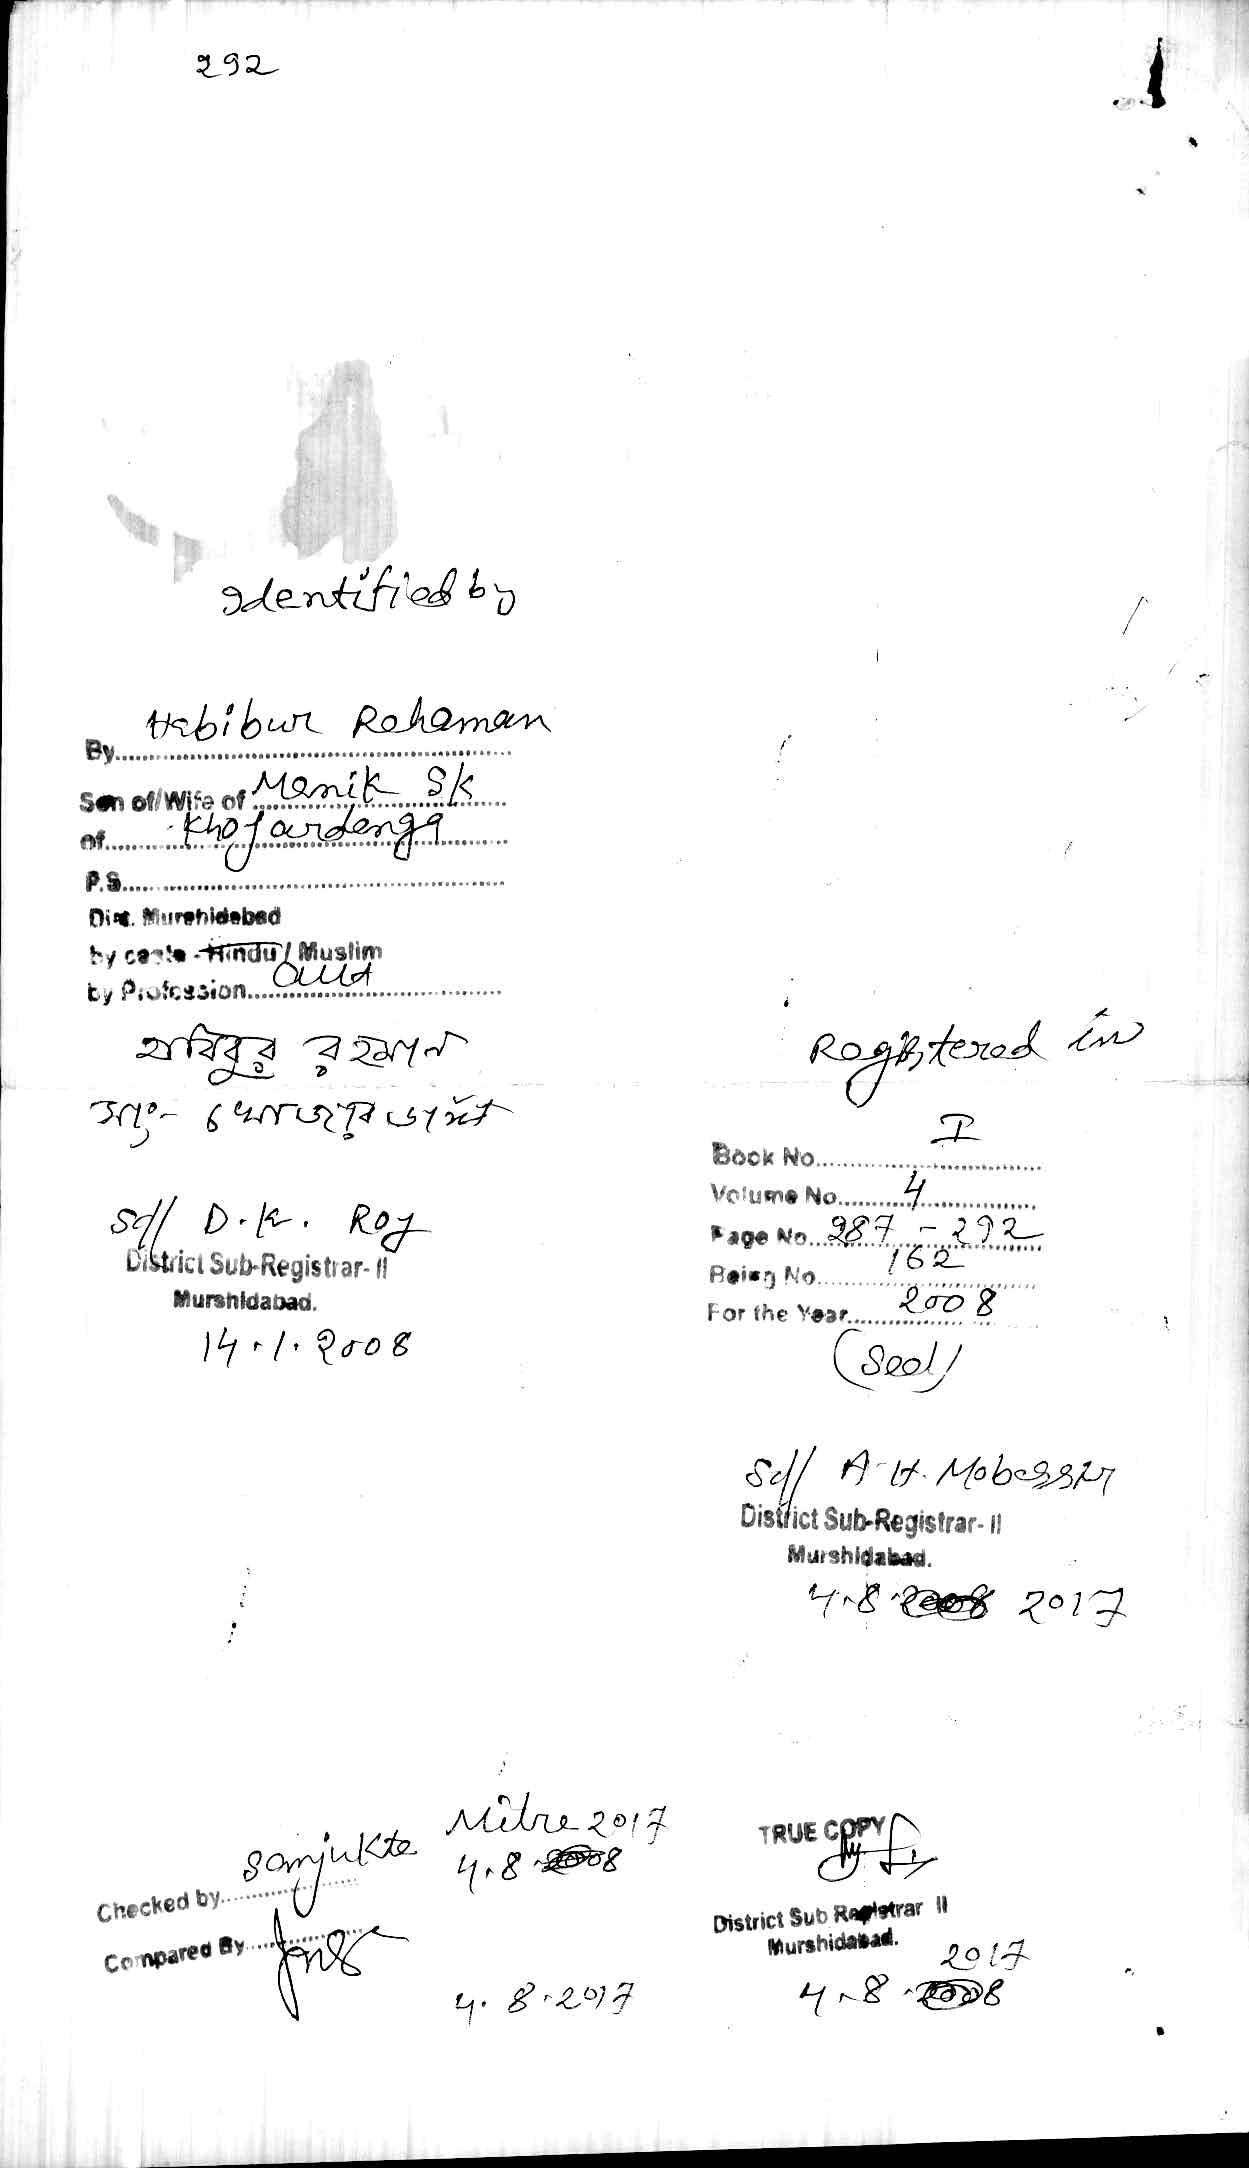 292
Identified by
Habibur Rahaman
By
Son of/Wife of Manik Sk
of Khojardanga
P.S.
Dist. Murshidabad
by caste - Hindu / Muslim
by Profession
হাবিবুর রহমান
সাং- খোজারডাঙ্গা
Sd/ D. K. Roy
District Sub-Registrar- II
Murshidabad.
14.1.2008
Registered in
Book No. I
Volume No. 4
Page No. 287 - 292
Being No. 162
For the Year 2008
(Seal)
Sd/ A. H. Mobassir
District Sub-Registrar- II
Murshidabad.
4.8.2008 2017
Checked by Samjukta Mitra 2017
4.8.2008
Compared By
4.8.2017
TRUE COPY
District Sub Registrar II
Murshidabad.
2017
4.8.2008